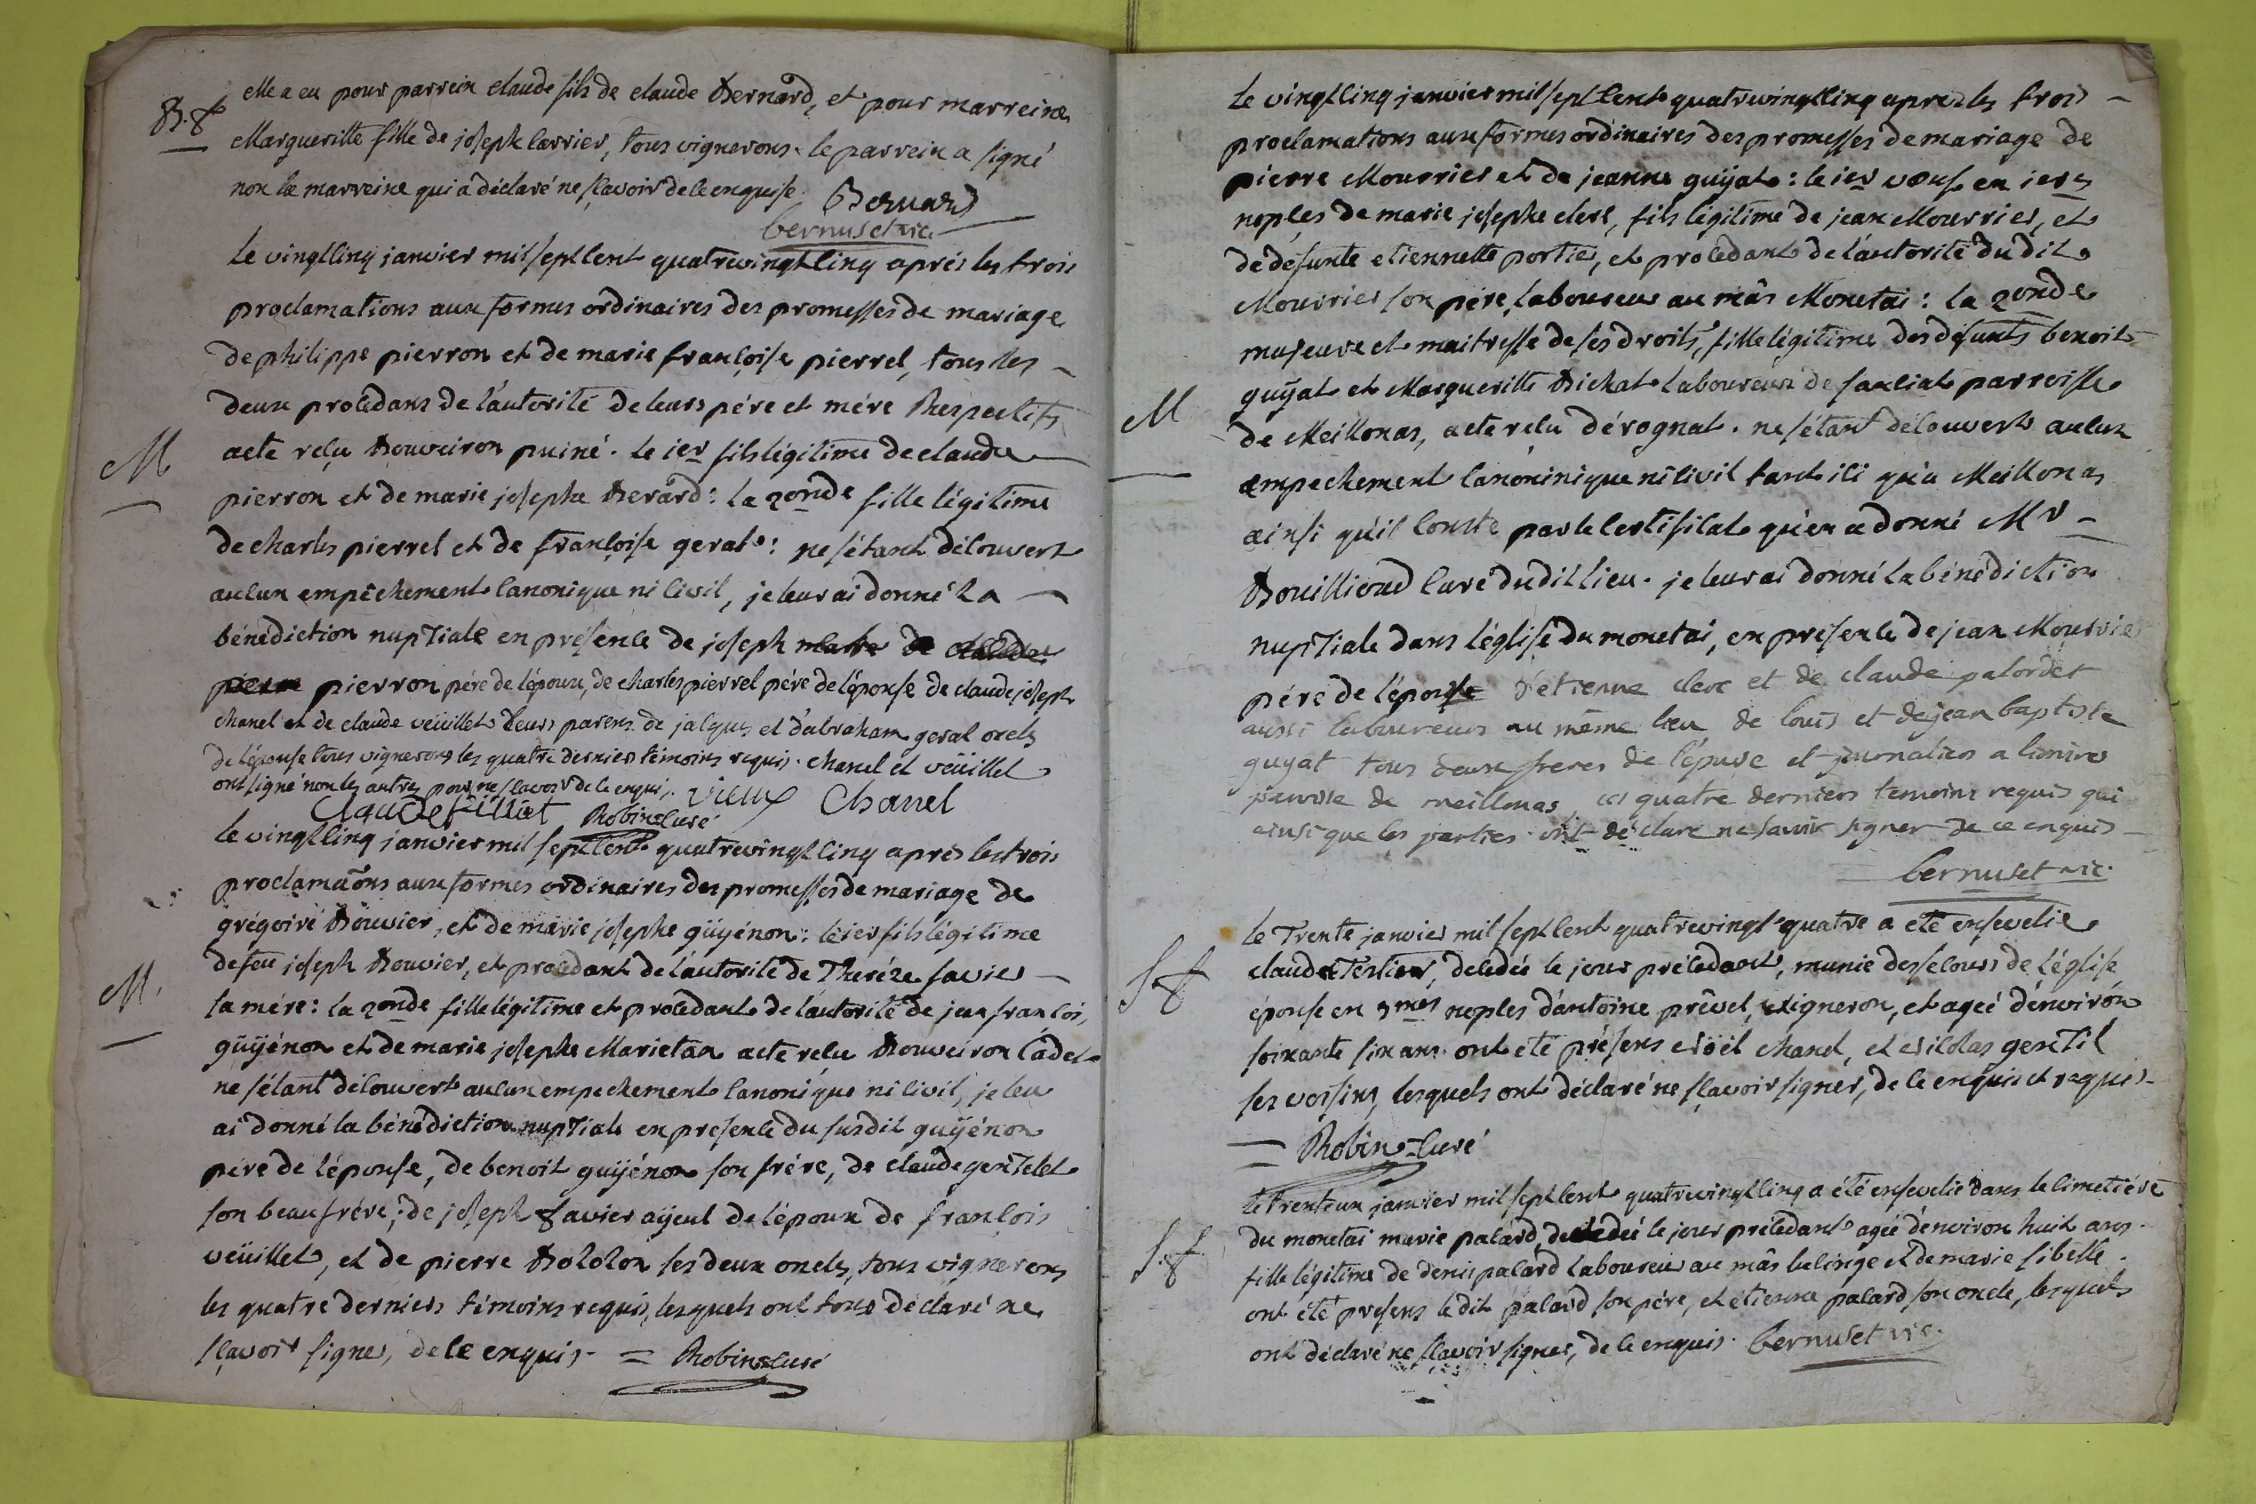 B. f.
elle a eu pour parrein claude fils de claude Bernard, et pour marreine
Margueritte fille de joseph Carrier, tous vignerons. le parrein a signé
non la marreine qui a déclaré ne sçavoir de ce enquise. Bernard
bernuset vic.
le vingtcinq janvier mil sept cent quatrevingtcinq aprés les trois
proclamations aux formes ordinaires des promesses de mariage
de philippe pierron et de marie françoise pierrel, tous les
deux procédans de l'autorité de leurs pére et mére Respectifs
M
acte reçu Bouveiron puiné. le ier fils légitime de claude
pierron et de marie josephe Berard: la 2onde fille légitime
de charles pierrel et de françoise gerat: ne s'étant découvert
aucun empêchement canonique ni civil, je leur ai donné la
bénédiction nuptiale en présence de joseph
pierron pére de l'époux, de charles pierrel pére de l'épouse de claude joseph
chanel et de claude veüillet deux parens de jacques et d'abraham gerat oncles
de l'épouse tous vignerons les quatre derniers témoins requis. chanel et veüillet
ont signé non les autres pour ne sçavoir de ce enquis. vieux Chanel
Claude Robin curé
le vingtcinq janvier mil sept cent quatrevingtcinq aprés les trois
proclamaõns aux formes ordinaires des promesses de mariage de
grégoire Bouvier, et de marie josephe güyénon: le ier fils légitime
M.
de feu joseph Bouvier, et procédant de l'autorité de Thérèze favier
sa mére: la 2onde fille légitime et procédant de l'autorité de jean françois
güyénon et de marie josephe Marietan acte reçu Bouveiron Cadet
ne s'étant découvert aucun empechement canonique ni civil, je leu
ai donné la bénédiction nuptiale en presence du susdit guyénon
pére de l'épouse, de benoit guyénon son frére, de claude gentelet
son beaufrére; de joseph favier aÿeul de l'époux de françois
veüillet, et de pierre Bozozon ses deux oncles, tous vignerons
les quatre derniers témoins requis, lesquels ont tous déclaré ne
sçavoir signer, de ce enquis. = Robin curé
le vingtcinq janvier mil sept cent quatrevingtcinq aprez les trois
proclamations aux formes ordinaires des promesses de mariage de
pierre Mourrier et de jeanne guÿat: le ier veuf en ieres
nopces de marie josephe clerc, fils légitime de jean Mourrier, et
de défunte etiennette portier, et procédant de l'autorité du dit
Mourrier son pére, laboureur au mâs Monetai: la 2onde
majeure et maitresse de ses droits, fille légitime des défunts benoit
guÿat et Margueritte Bichat laboureurs de sanciat parroisse
M
de Meillonas, acte reçu dérognat. ne s'étant découvert aucun
empechement canoninique ni civil tant ici qu'a Meillonas
ainsi qu'il conste par le certificat qu'en a donné Mr
Bouillioud curé du dit lieu. je leur ai donné la bénédiction
nuptiale dans l'église du monetai, en presence de jean Mourrier
pére de l'époux d'etienne clerc et de claude palordet
aussi laboureurs au même lieu de louis et de jean baptiste
guyat tous deux freres de l'épouse et journaliers a
paroisse de meillonas, ces quatre derniers temoins requis qui
ainsi que les parties ont déclaré ne savoir signer de ce enquis
bernuset vic.
le Trente janvier mil sept cent quatrevingt quatre a eté ensevelie
S. f
claude, décédée le jour précedant, munie des secours de l'église
épouse en 3mes nopces d'antoine prêvel, vigneron, et ageé d'environ
soixante six ans. ont eté présens noël chanel, et nicolas gentil
ses voisins, lesquels ont déclaré ne sçavoir signer, de ce enquis et requis
= Robin curé
le trenteun janvier mil sept cent quatrevingtcinq a été ensevelie dans le cimetiére
S. f.
du monetai marie palârd, décédeé le jour précédant ageé d'environ huit ans
fille légitime de denis palârd laboureur au mâs belinge et de marie sibelle.
ont été presens le dit palard son pére, et étienne palard son oncle, lesquels
ont déclaré ne sçavoir signer, de ce enquis. bernuset vic.